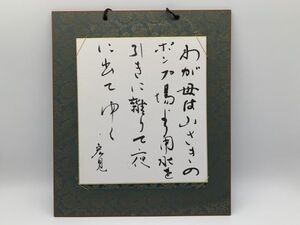 わが母は小さきの
ポンプ場より用水を
引きに離りて夜
に出てゆく